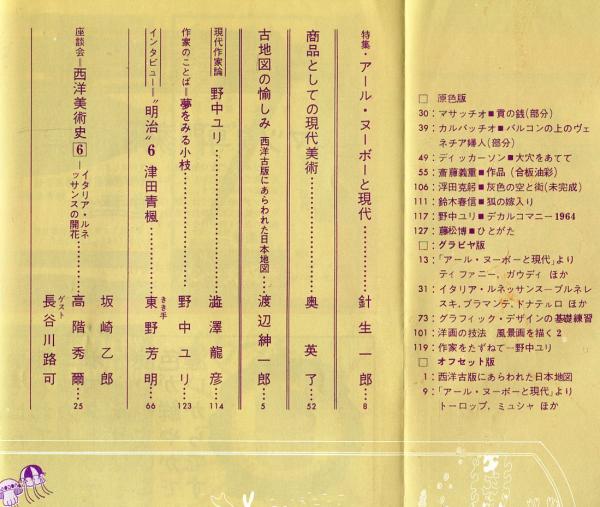 特集・アール・ヌーボーと現代…………針生一郎…8
商品としての現代美術…………奥英了…52
古地図の愉しみ 西洋古版にあらわれた日本地図…渡辺紳一郎…5
現代作家論 野中ユリ…………澁澤龍彦…114
作家のことば=夢をみる小枝…………野中ユリ…123
インタビュー="明治"6 津田青楓…………きき手 東野芳明…66
座談会=西洋美術史6=イタリア・ルネッサンスの開花…
坂崎乙郎
高階秀爾…25
ゲスト 長谷川路可
□ 原色版
30:マサッチオ■貢の銭(部分)
39:カルパッチオ■バルコンの上のヴェ
ネチア婦人(部分)
49:ディッカーソン■大穴をあてて
55:斎藤義重■作品(合板油彩)
106:浮田克躬■灰色の空と街(未完成)
111:鈴木春信■狐の嫁入り
117:野中ユリ■デカルコマニー1964
127:藤松博■ひとがた
□:グラビヤ版
13:「アール・ヌーボーと現代」より
ティファニー,ガウディ ほか
31:イタリア・ルネッサンス―ブルネレ
スキ,ブラマンテ,ドナテルロ ほか
73:グラフィック・デザインの基礎練習
101:洋画の技法 風景画を描く2
119:作家をたずねて―野中ユリ
□ オフセット版
1:西洋古版にあらわれた日本地図
9:「アール・ヌーボーと現代」より
トーロップ,ミュシャ ほか